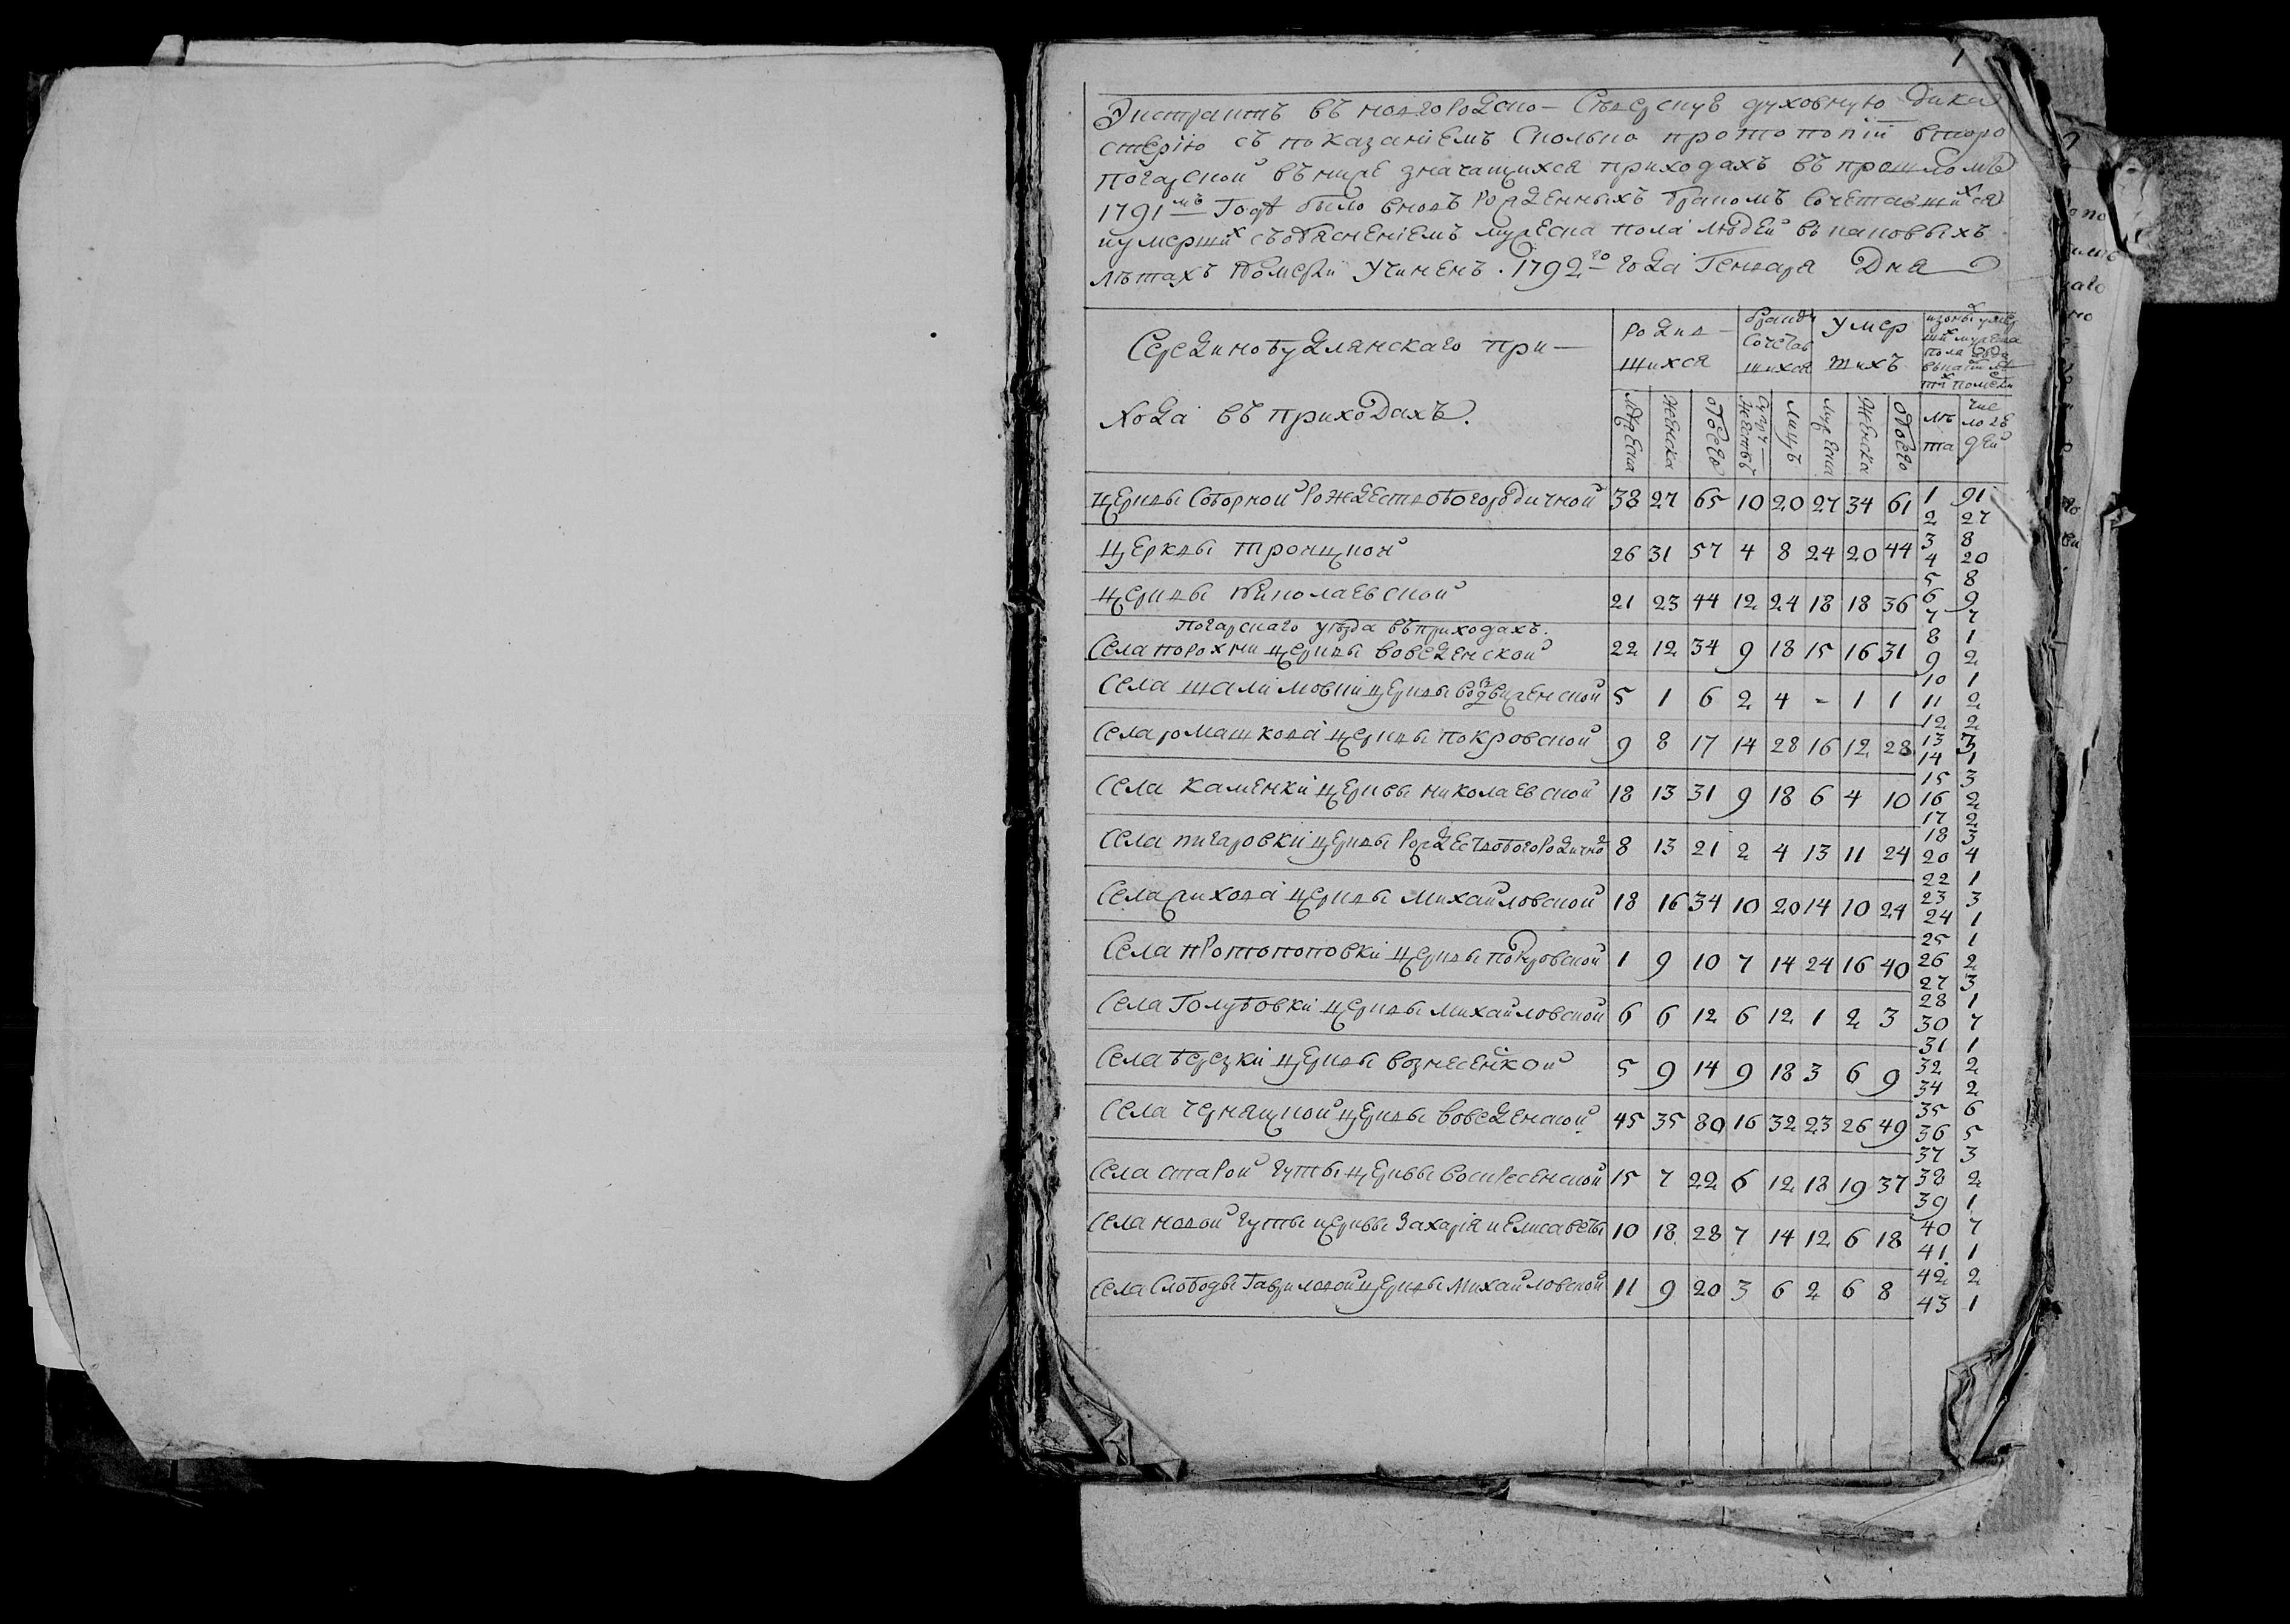 1
Экстрактъ въ новгородско- Северскую духовную дика
стерію съ показаніемъ Сколько протопопіи второ
погарской въ ниже значащихся приходахъ въ прошломъ
1791мъ Годѣ было вновь рожденныхъ бракомъ сочетавшихся
и умершихъ съ обясненіемъ мужеска пола людей въ каковыхъ
лѣтахъ померли Учиненъ. 1792го года Генваря Дня
Серединобудлянскаго при-
хода въ приходахъ.
родив-
шихся
бракомъ
сочетав
шихся
умер
шихъ
мужеска
женска
обоего
супру-
жествъ
лицъ
мужеска
женска
обоего
лѣ
та
чис
ло лю
дей
церквы Соборной Рождествобогородичной 38 27 65 10 20 27 34 61
церквы троицкой 26 31 57 4 8 24 20 44
церквы Николаевской 21 23 44 12 24 18 18 36
погарскаго уѣзда въ приходахъ.
Села порохни церквы введенской 22 12 34 9 18 15 16 31
Села шалимовки церквы воздвиженской 5 1 6 2 4 - 1 1
Села ромашкова церквы покровской 9 8 17 14 28 16 12 28
Села каменки церквы николаевской 18 13 31 9 18 6 4 10
Села пигаровки церквы Рождествобогородично 8 13 21 2 4 13 11 24
Села церквы Михайловской 18 16 34 10 20 14 10 24
Села протопоповки церквы покровской 1 9 10 7 14 24 16 40
Села Голубовки церквы михайловской 6 6 12 6 12 1 2 3
Села березки церквы вознесенкой 5 9 14 9 18 3 6 9
Села чернацкой церквы введенской 45 35 80 16 32 23 26 49
Села старой гуты церквы воскресенской 15 7 22 6 12 18 19 37
Села новой гуты церквы Захарія и Елисаветы 10 18 28 7 14 12 6 18
Села Слободы Гавриловой церквы Михайловской 11 9 20 3 6 2 6 8
1 91
2 27
3 8
4 20
5 8
6 9
7 7
8 1
9 2
10 1
11 2
12 2
13 3
14 1
15 3
16 2
17 2
18 3
20 4
22 1
23 3
24 1
25 1
26 2
27 3
28 1
30 7
31 1
32 2
34 2
35 6
36 5
37 3
38 2
39 1
40 7
41 1
42 2
43 1